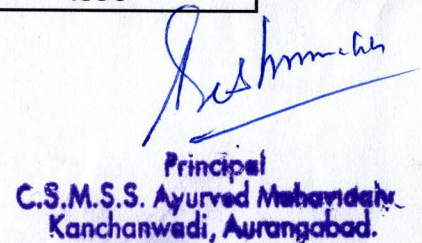 Principal
C.S.M.S.S. Ayurved Mahavidaly.
Kanchanwadi, Aurangabad.